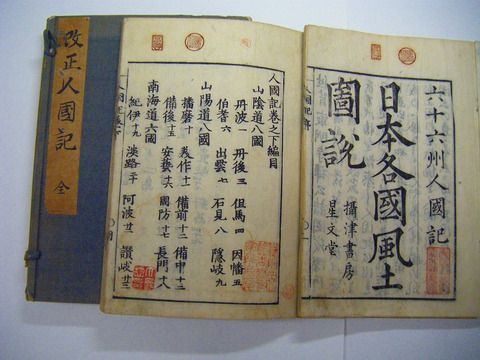 六十六州人國記
日本各國風土
圖說
攝津書房
星文堂
人國記卷之下編目
山陰道八國
丹波一 丹後三 但馬四 因幡五
伯耆六 出雲七 石見八 隱岐九
山陽道八國
播磨十 美作十一 備前十二 備中十三
備後 安藝十六 周防 長門十八
南海道六國
紀伊十九 淡路二十 阿波 讚岐
改正人國記 全